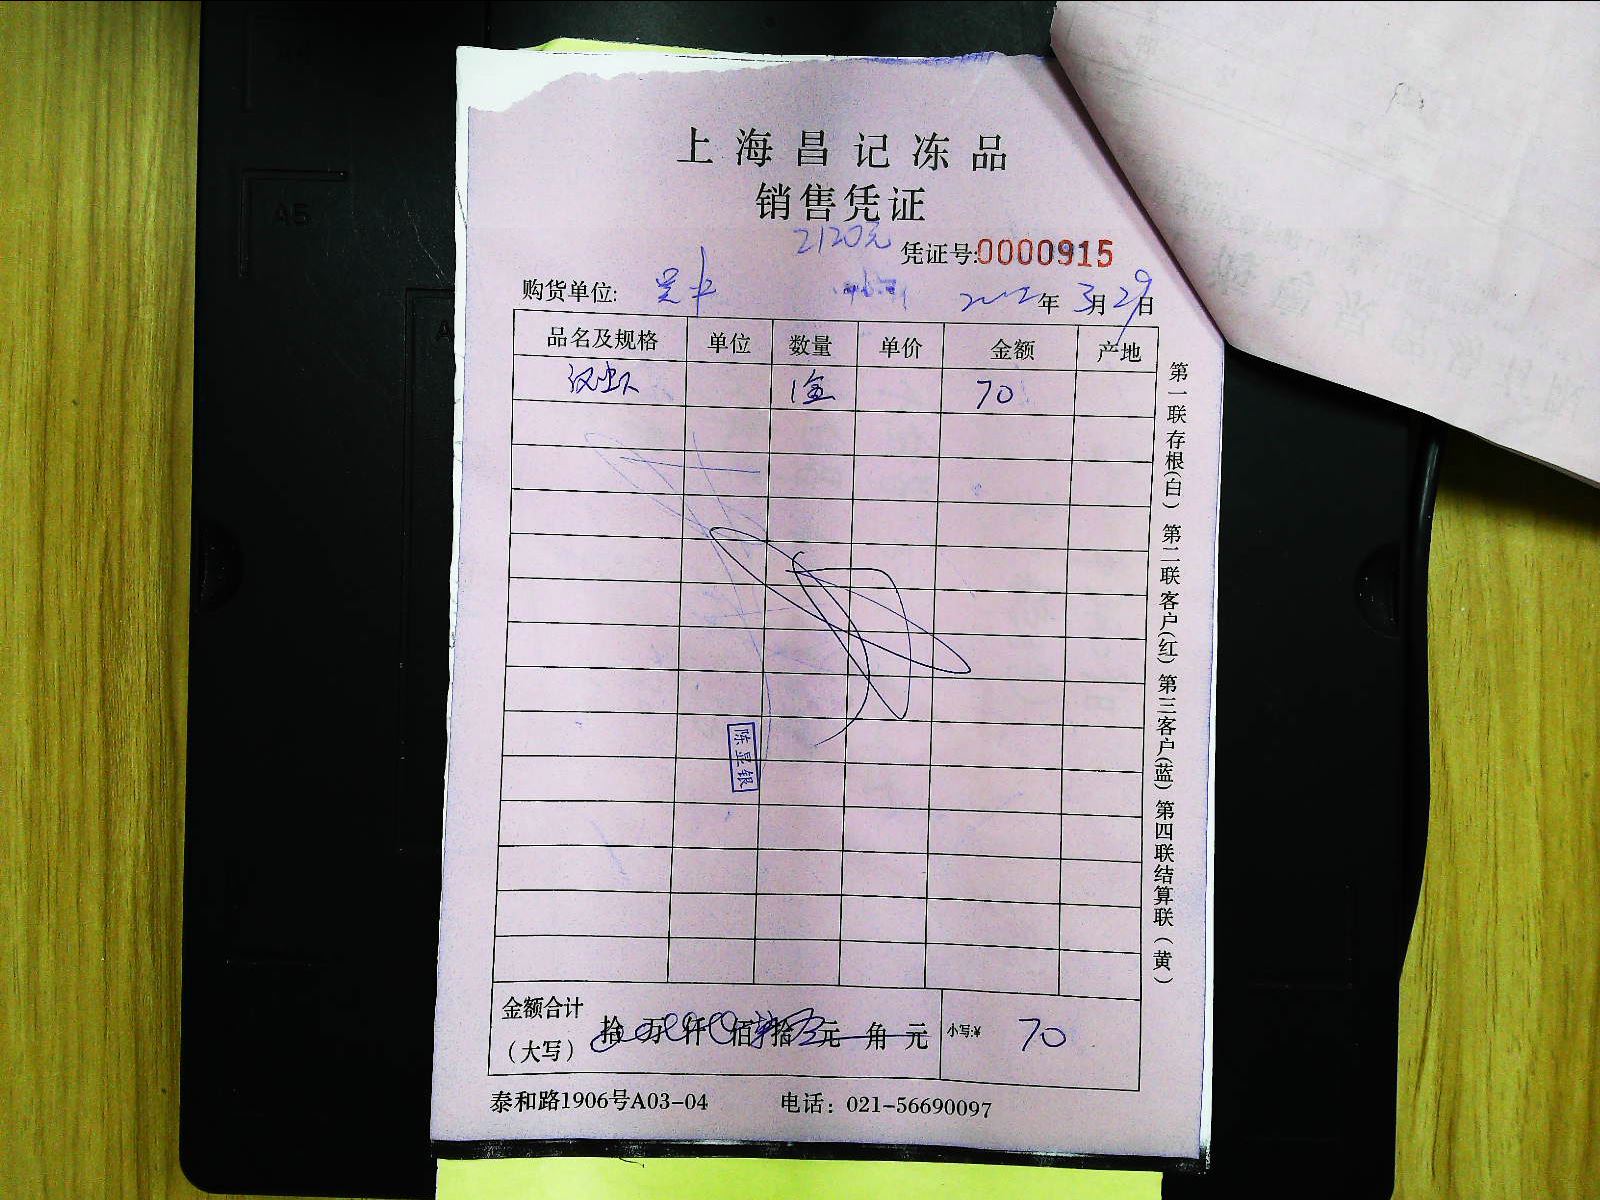 上海昌记冻品
销售凭证
2120元
凭证号:0000915
购货单位:
年 3月29日
品名及规格 单位 数量 单价 金额 产地
70
陈显银
金额合计
(大写) 拾 万 仟 佰 拾 元 角 元 小写:¥ 70
泰和路1906号A03-04 电话: 021-56690097
第一联存根(白) 第二联客户(红) 第三客户(蓝) 第四联结算联(黄)
A5